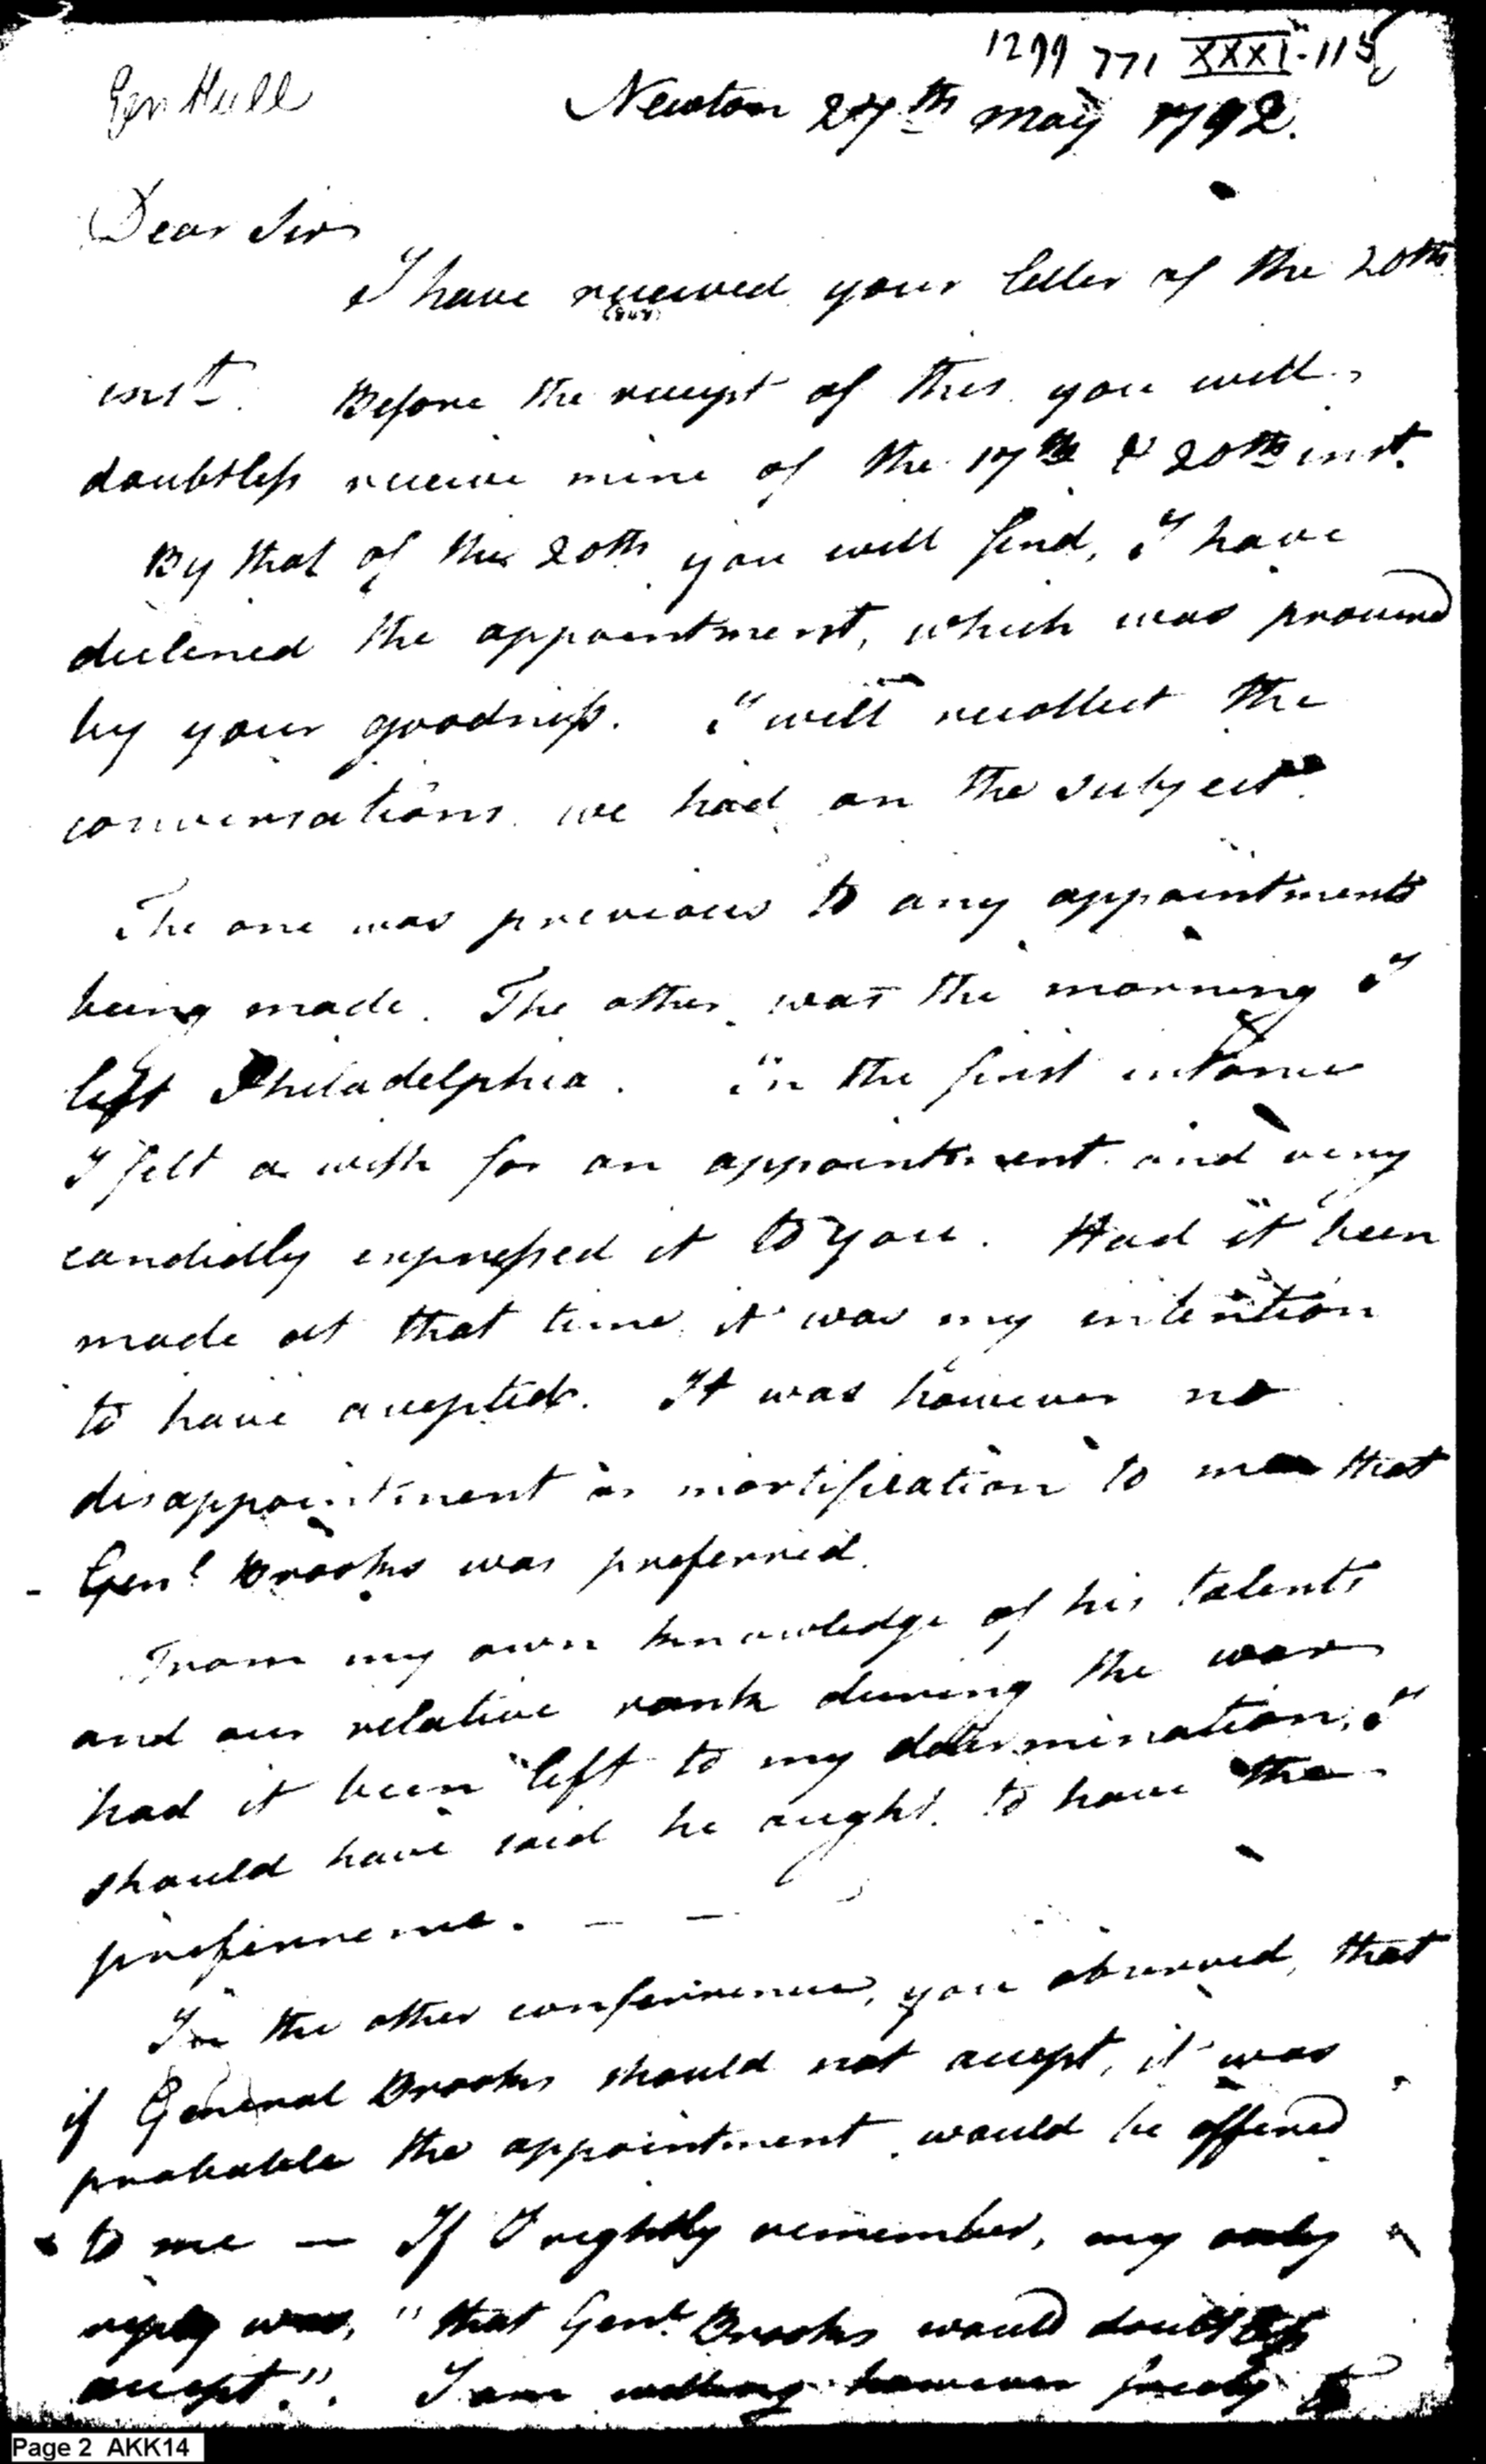 1299 771 XXXI-115
Gen Hull
Newton 27th May 1792.
Dear Sir
I have received your letter of the 20th
inst. Before the receipt of this you will
doubtless receive mine of the 17th & 20th inst.
By that of the 20th you will find, I have
declined the appointment, which was procured
by your goodness. I will recollect the
conversations we had on the subject.
The one was previous to any appointments
being made. The other was the morning I
left Philadelphia. In the first instance
I felt a wish for an appointment and very
candidly expressed it to you. Had it been
made at that time it was my intention
to have accepted. It was however no
disappointment or mortification to me that
Genl Brooks was preferred.
From my own knowledge of his talents
and our relative rank during the war
had it been left to my determination, I
should have said he ought to have the
preferrence. — —
In the other conferrence, you observed, that
if General Brooks should not accept, it was
probable the appointment would be offered
to me — If I rightly remember, my only
reply was, "that Genl Brooks would doubtless
accept.". I am willing however freely to
Page 2 AKK14